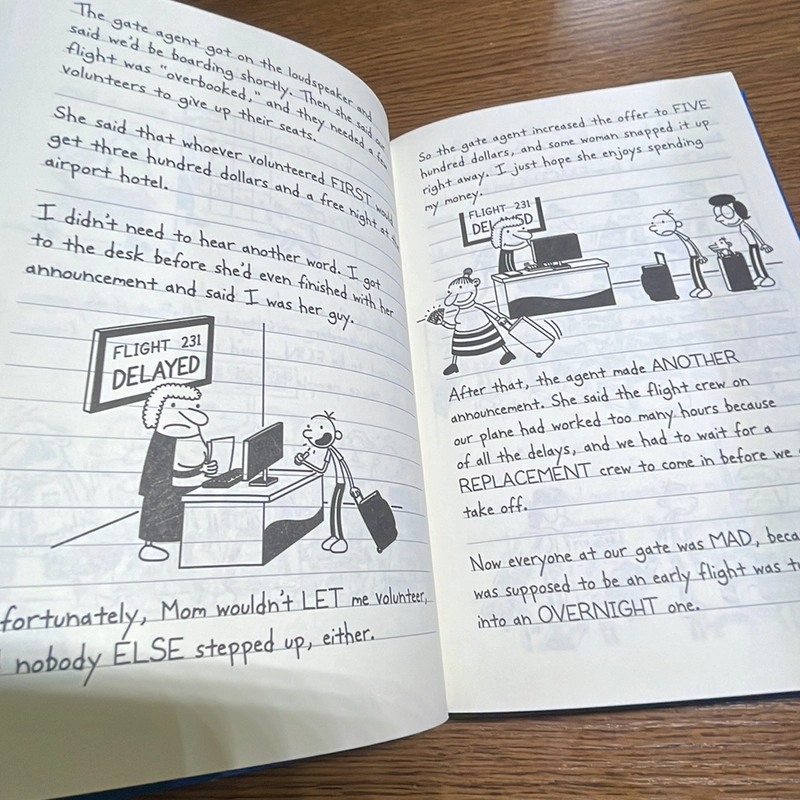 The gate agent got on the loudspeaker and
said we'd be boarding shortly. Then she said our
flight was "overbooked," and they needed a few
volunteers to give up their seats.
She said that whoever volunteered FIRST would
get three hundred dollars and a free night at the
airport hotel.
I didn't need to hear another word. I got
to the desk before she'd even finished with her
announcement and said I was her guy.
FLIGHT 231
DELAYED
fortunately, Mom wouldn't LET me volunteer,
nobody ELSE stepped up, either.
So the gate agent increased the offer to FIVE
hundred dollars, and some woman snapped it up
right away. I just hope she enjoys spending
my money.
FLIGHT 231
After that, the agent made ANOTHER
announcement. She said the flight crew on
our plane had worked too many hours because
of all the delays, and we had to wait for a
REPLACEMENT crew to come in before we
take off.
Now everyone at our gate was MAD, beca
was supposed to be an early flight was
into an OVERNIGHT one.